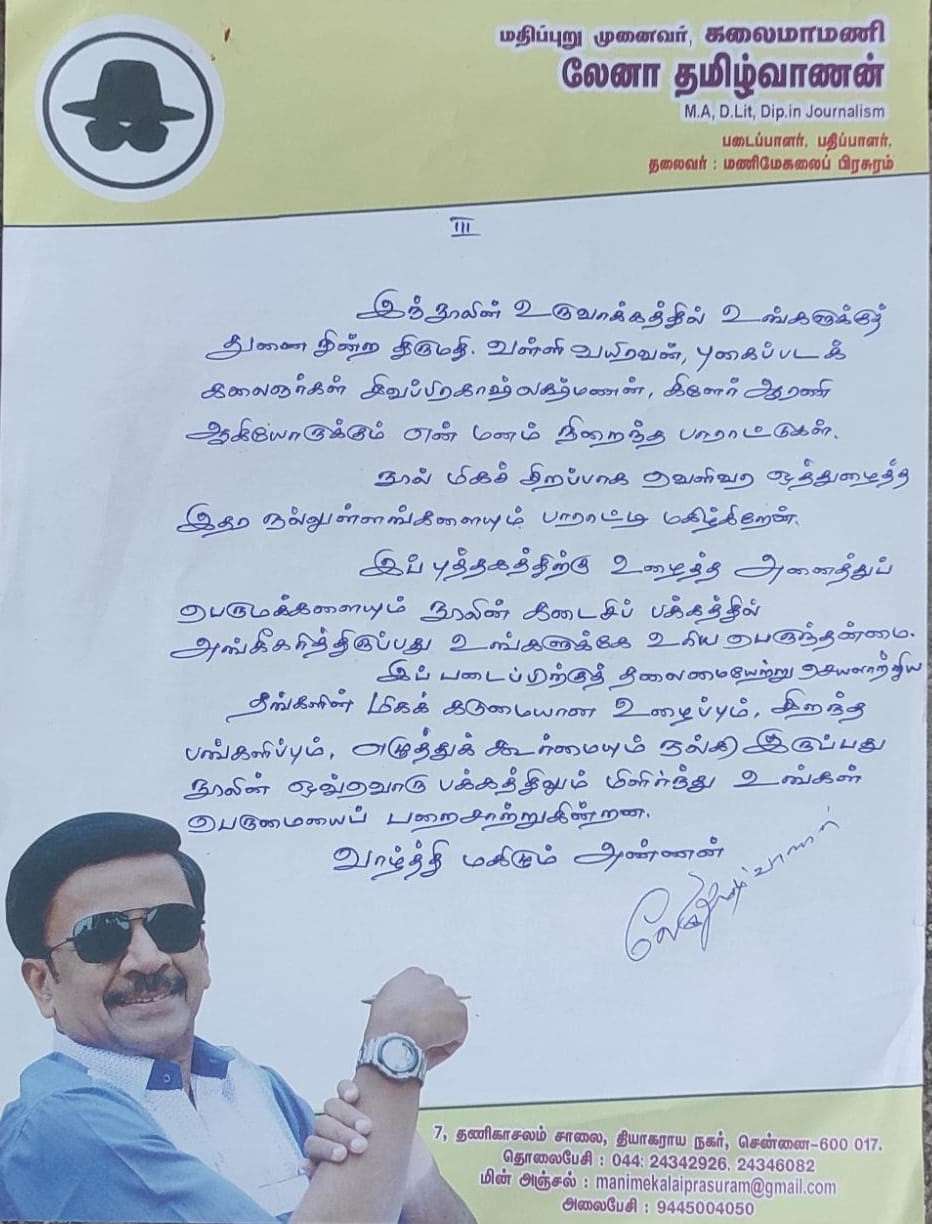 மதிப்புறு முனைவர், கலைமாமணி
லேனா தமிழ்வாணன்
M.A, D.Lit, Dip.in Journalism
படைப்பாளர், பதிப்பாளர்,
தலைவர் : மணிமேகலைப் பிரசுரம்
III
இந்நூலின் உருவாக்கத்தில் உங்களுக்குத்
துணை நின்ற திருமதி. வள்ளி வயிரவன், புகைப்படக்
கலைஞர்கள் சிவப்பிரகாஷ் லக்ஷ்மணன், கிளேர் ஆரணி
ஆகியோருக்கும் என் மனம் நிறைந்த பாராட்டுகள்.
நூல் மிகச் சிறப்பாக வெளிவர ஒத்துழைத்த
இதர நல்லுள்ளங்களையும் பாராட்டி மகிழ்கிறேன்.
இப் புத்தகத்திற்கு உழைத்த அனைத்துப்
பெருமக்களையும் நூலின் கடைசிப் பக்கத்தில்
அங்கீகரித்திருப்பது உங்களுக்கே உரிய பெருந்தன்மை.
இப் படைப்பிற்குத் தலைமையேற்று செயலாற்றிய
தங்களின் மிகக் கடுமையான உழைப்பும், சிறந்த
பங்களிப்பும், எழுத்துக் கூர்மையும் நல்கி இருப்பது
நூலின் ஒவ்வொரு பக்கத்திலும் மிளிர்ந்து உங்கள்
பெருமையைப் பறைசாற்றுகின்றன.
வாழ்த்தி மகிழும் அண்ணன்
7, தணிகாசலம் சாலை, தியாகராய நகர், சென்னை-600 017.
தொலைபேசி : 044: 24342926, 24346082
மின் அஞ்சல் : manimekalaiprasuram@gmail.com
அலைபேசி : 9445004050